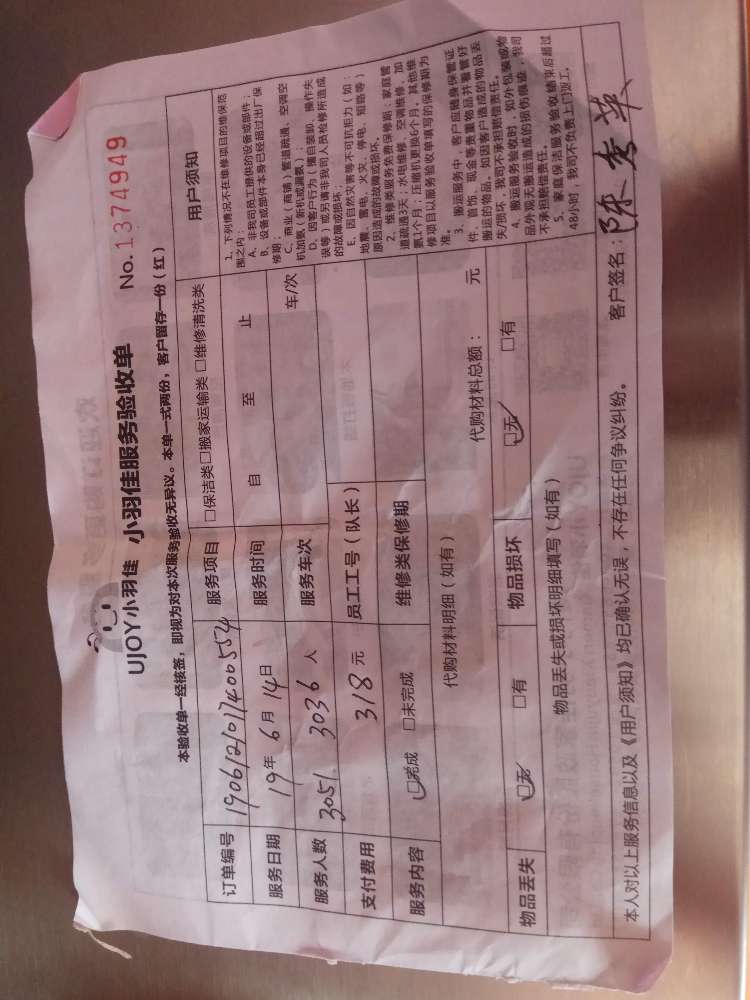 UJOY小羽佳 小羽佳服务验收单 No.1374949
本验收单一经核签，即视为对本次服务验收无异议。本单一式两份，客户留存一份（红）
订单编号 190612017400554 服务项目 □保洁类□搬家运输类 □维修清洗类
服务日期 19年6月14日 服务时间 自 至 止
服务人数 3051 3036 人 服务车次 车/次
支付费用 318元 员工工号（队长）
服务内容 □完成 □未完成 维修类保修期
代购材料明细（如有） 代购材料总额： 元
物品丢失 □无 □有 物品损坏 □无 □有
物品丢失或损坏明细填写（如有）
用户须知
1、下列情况不在维修项目的维保范
围之内：
A、非我司员工提供的设备或部件；
B、设备或部件本身已经超过出厂保
修期；
C、商业（商铺）管道疏通、空调空
机加氨（新机或漏氨）；
D、因客户行为（擅自装卸、操作失
误等）或另请非我司人员检修所造成
的故障或损坏；
E、因自然灾害等不可抗拒力（如：
地震、雷电、火灾、停电、短路等）
原因造成的故障或损坏。
2、维修类服务免费保修期：家庭管
道疏通3天；水电维修、空调维修、加
氨1个月；压缩机更换6个月。其他维
修项目以服务验收单填写的保修期为
准。
3、搬运服务中，客户应随身保管证
件、首饰、现金等贵重物品并看管好
搬运的物品。如因客户造成的物品丢
失/损坏，我司不承担赔偿责任。
4、搬运服务验收时，如外包装或物
品外观无搬运造成的损伤痕迹，我司
不承担赔偿责任。
5、家庭保洁服务验收结束后超过
48小时，我司不负责上门返工。
本人对以上服务信息以及《用户须知》均已确认无误，不存在任何争议纠纷。 客户签名：陈秀英